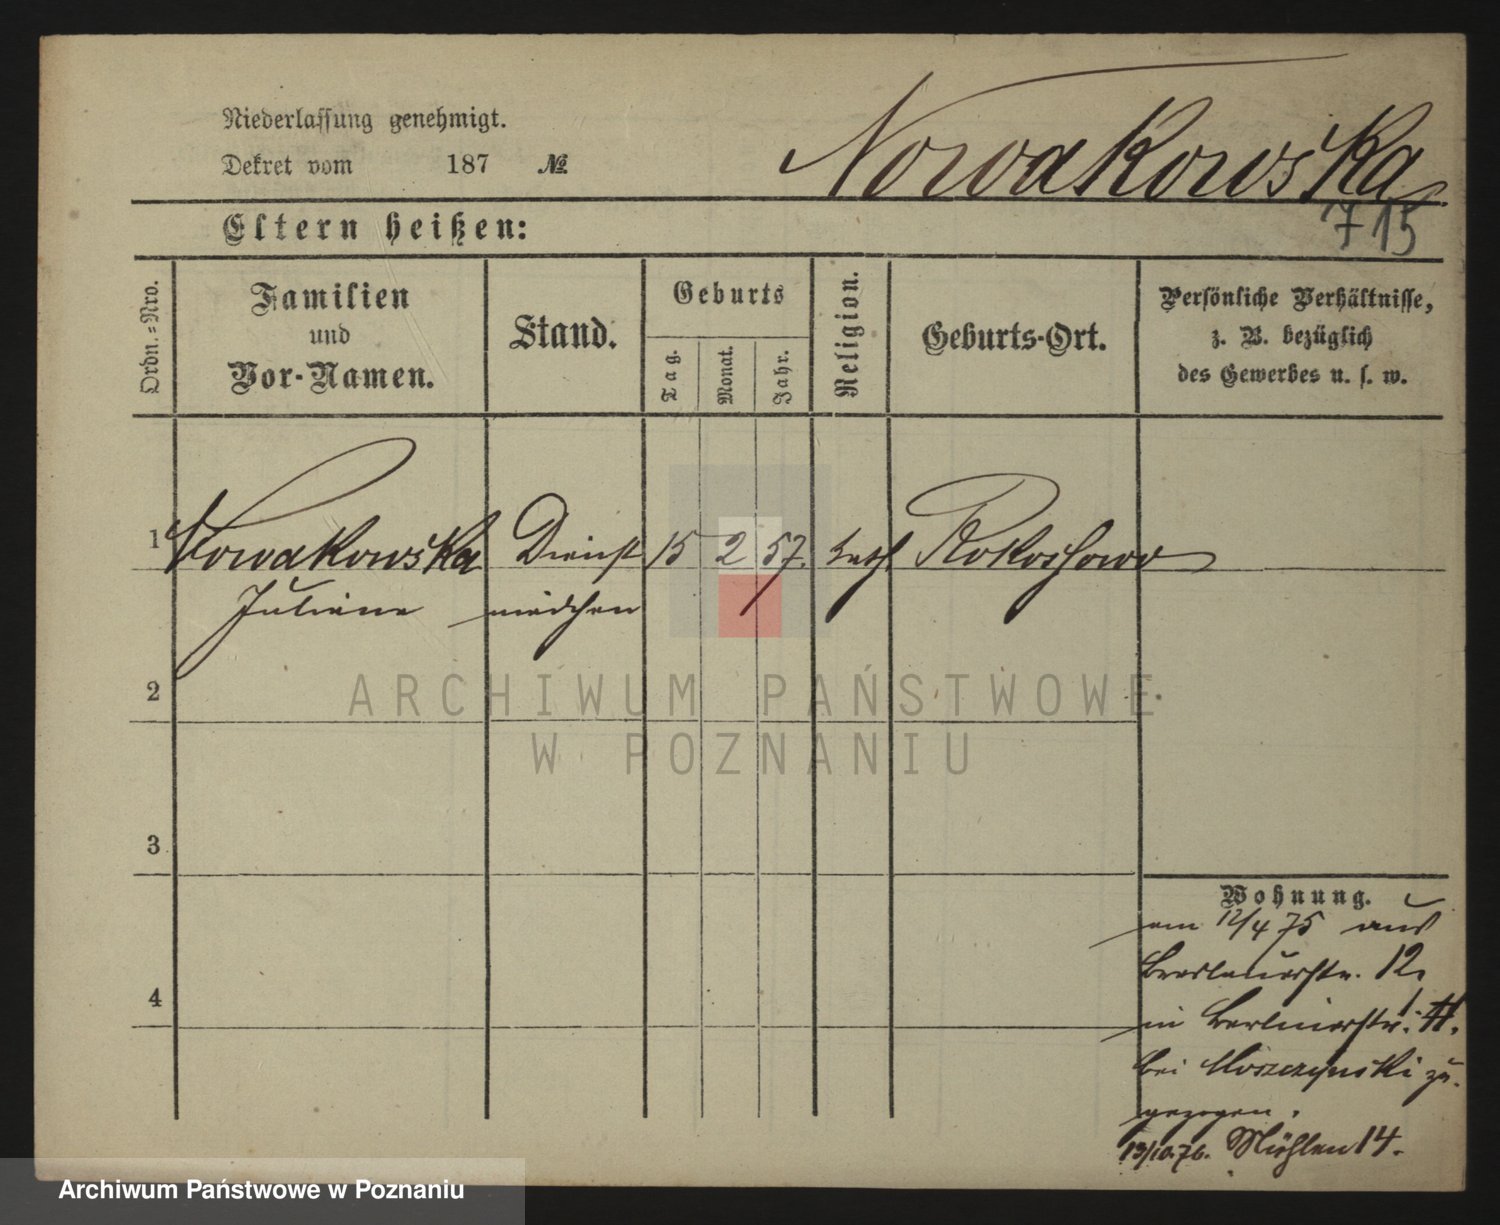 Niederlassung genehmigt.
Dekret vom 187 №
Nowakowska
715
Eltern heißen:
Ordn.-Nro.
Familien
und
Vor-Namen.
Stand.
Geburts
Tag.
Monat.
Jahr.
Religion.
Geburts-Ort.
Persönliche Verhältnisse,
z. B. bezüglich
des Gewerbes u. s. w.
1 Nowakowska Dienst 15 2 57. kath Rokossowo
Juliane mädchen
2
3
4
Wohnung.
am 12/4 75 aus
Breslauerstr. 12.
in Berlinerstr.
bei Moszczynski zu-
gezogen.
13/10.76. Mühlen 14.
ARCHIWUM PAŃSTWOWE
W POZNANIU
Archiwum Państwowe w Poznaniu